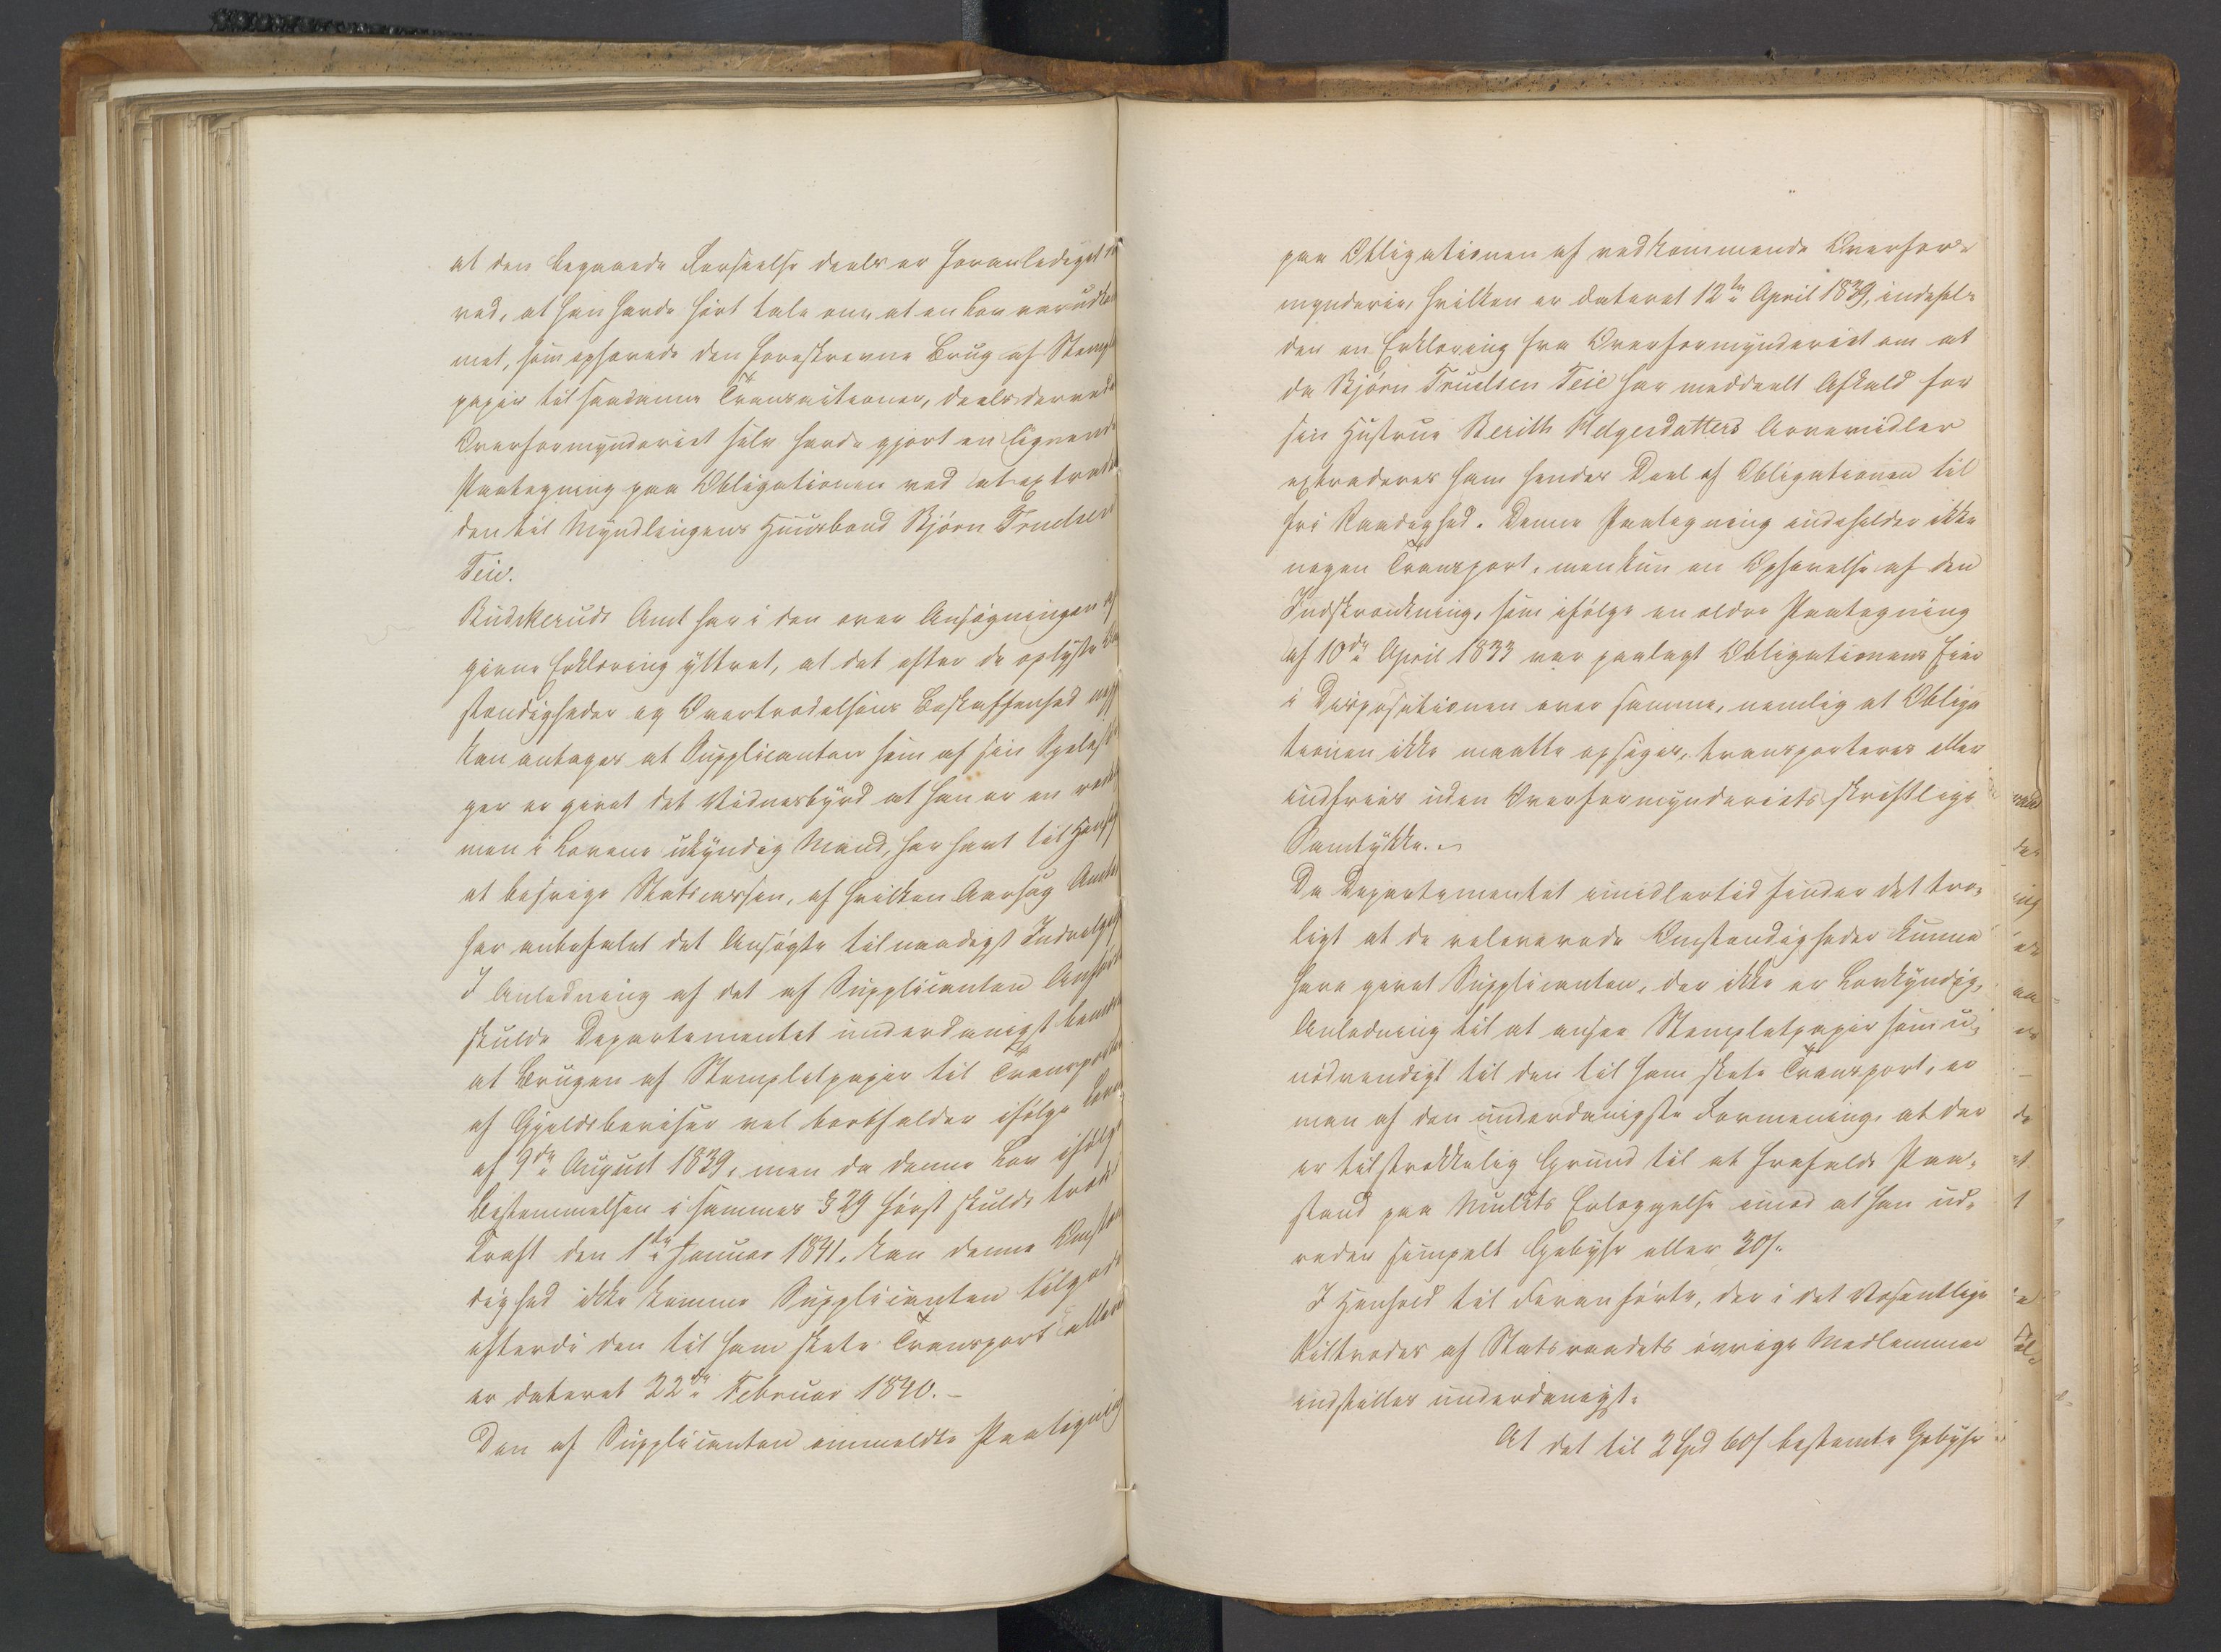 at den begaaede Forseelse deels er foranlediget
ved, at han havde hørt tale om at en Lov var udkom
met, som ophævede den foreskrevne Brug af Stempl
papir til saadanne Transactioner, deels derved
Overformynderiet selv havde gjort en lignende
Paategning paa Obligationen ved at extrade
den til Myndlingens Huusbond Bjørn Truelsen
Teie.
Buskeruds Amt har i den over Ansøgningen af
givne Erklæring yttret, at det efter de oplyste Om
stændigheder og Overtrædelsens Beskaffenhed
kan antages at Supplicanten som af sin Sjelesør
ger er givet det Vidnesbyrd at han er en
men i Lovene ukyndig Mand, har havt til Hensigt
at besvige Statscassen, af hvilken Aarsag Amtet
har anbefalet det Ansøgte til naadigst Indvilgelse
I Anledning af det af Supplicanten Anførte
skulde Departementet underdanigst bemærke
at Brugen af Stempletpapir til Transporter
af Gjeldsbeviser vel bortfalder ifølge Lov
af 9de August 1839, men da denne Lov ifølge
Bestemmelsen i sammes § 29 først skulde træde i
Kraft den 1ste Januar 1841, kan denne Omstæn
dighed ikke komme Supplicanten tilgode
efterdi den til ham skete Transport allere
er dateret 22de Februar 1840.-
Den af Supplicanten ommeldte Paategning
paa Obligationen af vedkommende Overfor-
mynderie, hvilken er dateret 12te April 1839, indehol-
der en Erklæring fra Overformynderiet om at
da Bjørn Truelsen Teie har meddeelt Afkald for
sin Hustrue Berith Helgesdatters Arvemidler
extraderes ham hendes Deel af Obligationen til
fri Raadighed. Denne Paategning indeholder ikke
nogen Transport, men kun en Ophævelse af den
Indskrænkning, som ifølge en ældre Paategning
af 10de April 1833 var paalagt Obligationens Eier
i Dispositionen over samme, nemlig at Obliga
tionen ikke maatte opsiges, transporteres eller
indfries uden Overformynderiets skriftlige
Samtykke.-
Da Departementet imidlertid finder det tro-
ligt at de releverede Omstændigheder kunne
have givet Supplicanten, der ikke er Lovkyndig,
Anledning til at ansee Stempletpapir som u-
nødvendigt til den til ham skete Transport, er
man af den underdanigste Formening, at der
er tilstrækkelig Grund til at frafalde Paa-
stand paa Mulkts Erlæggelse imod at han ud-
reder simpelt Gebyhr eller 30 s.
I Henhold til Foranførte, der i det Væsentlige
tiltrædes af Statsraadets øvrige Medlemmer
indstilles underdanigst:
At det til 2 Spd 60 s bestemte Gebyhr